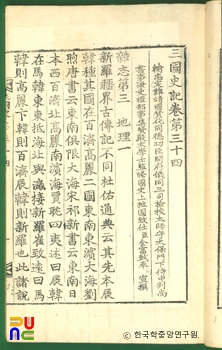 三國史記卷第三十四
輸忠定難靖國贊化同德功臣開府儀同三司檢校太師守太保門下侍中判尚
書事兼吏禮部事集賢殿太學士監修國史上柱國致仕臣金富軾奉 宣撰
雜志第三 地理一
新羅疆界古傳記不同杜佑通典云其先本辰
韓種其國在百濟高麗二國東南東濱大海劉
煦唐書云東南俱限大海宋祁新書云東南日
本西百濟北高麗南濱海賈耽四夷述曰辰韓
在馬韓東東抵海北與濊接新羅崔致遠曰馬
韓則高麗卞韓則百濟辰韓則新羅也此諸說
한국학중앙연구원